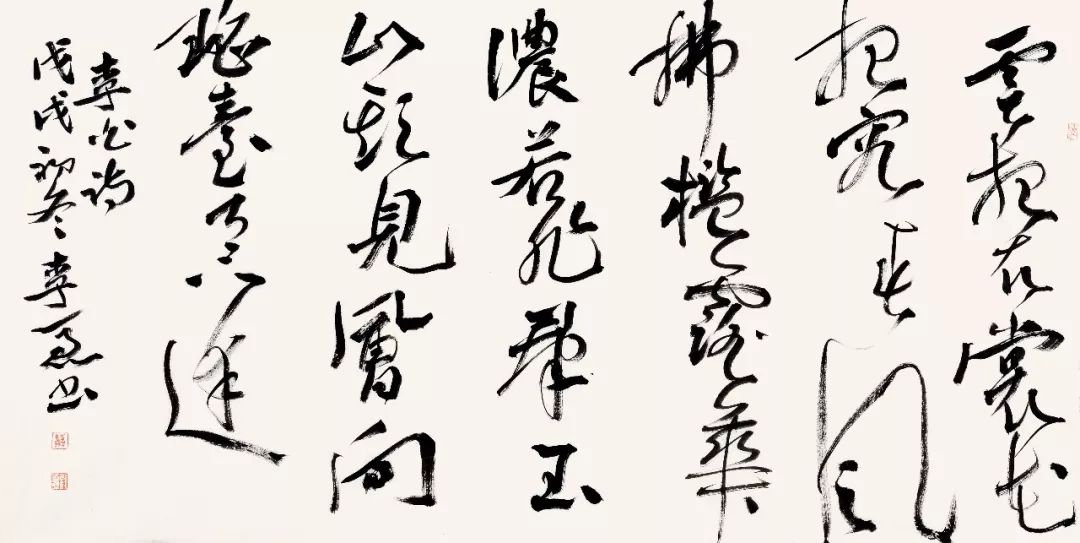 雲想衣裳花
想容春風
拂檻露華
濃若非羣玉
山頭見會向
瑤臺月下逢
李白詩
戊戌初冬李書